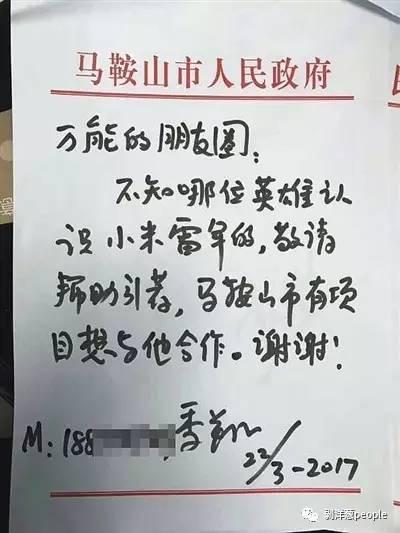 马鞍山市人民政府
万能的朋友圈：
不知哪位英雄认
识小米雷军的，敬请
帮助引荐，马鞍山市有项
目想与他合作。谢谢！
M：188
季翔
22/3-2017
剥洋葱people